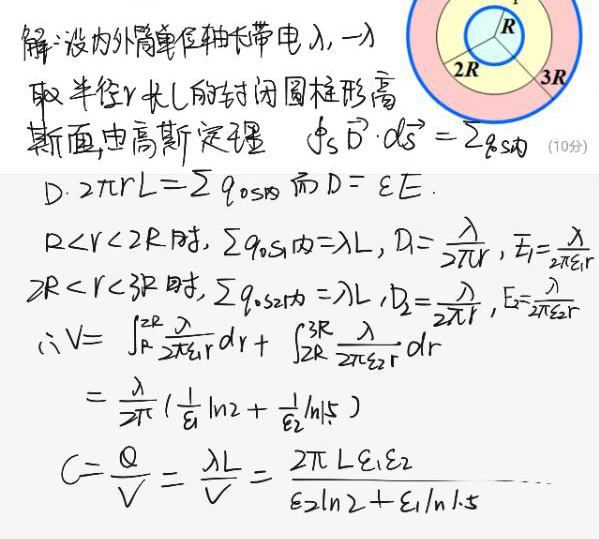 解:设内外筒单位轴长带电λ,-λ
取半径r长L的封闭圆柱形高
斯面,由高斯定理 ∮s D⃗·dS⃗ = Σq0S内 (10分)
D·2πrL=Σq0S内 而D=εE.
R<r<2R时, Σq0S1内=λL, D1=λ/2πr, E1=λ/2πε1r
2R<r<3R时, Σq0S2内=λL, D2=λ/2πr, E2=λ/2πε2r
∴V=∫R^2R λ/2πε1r dr + ∫2R^3R λ/2πε2r dr
=λ/2π(1/ε1 ln2+1/ε2 ln1.5)
C=Q/V=λL/V=2πLε1ε2/ε2ln2+ε1ln1.5
R
2R
3R